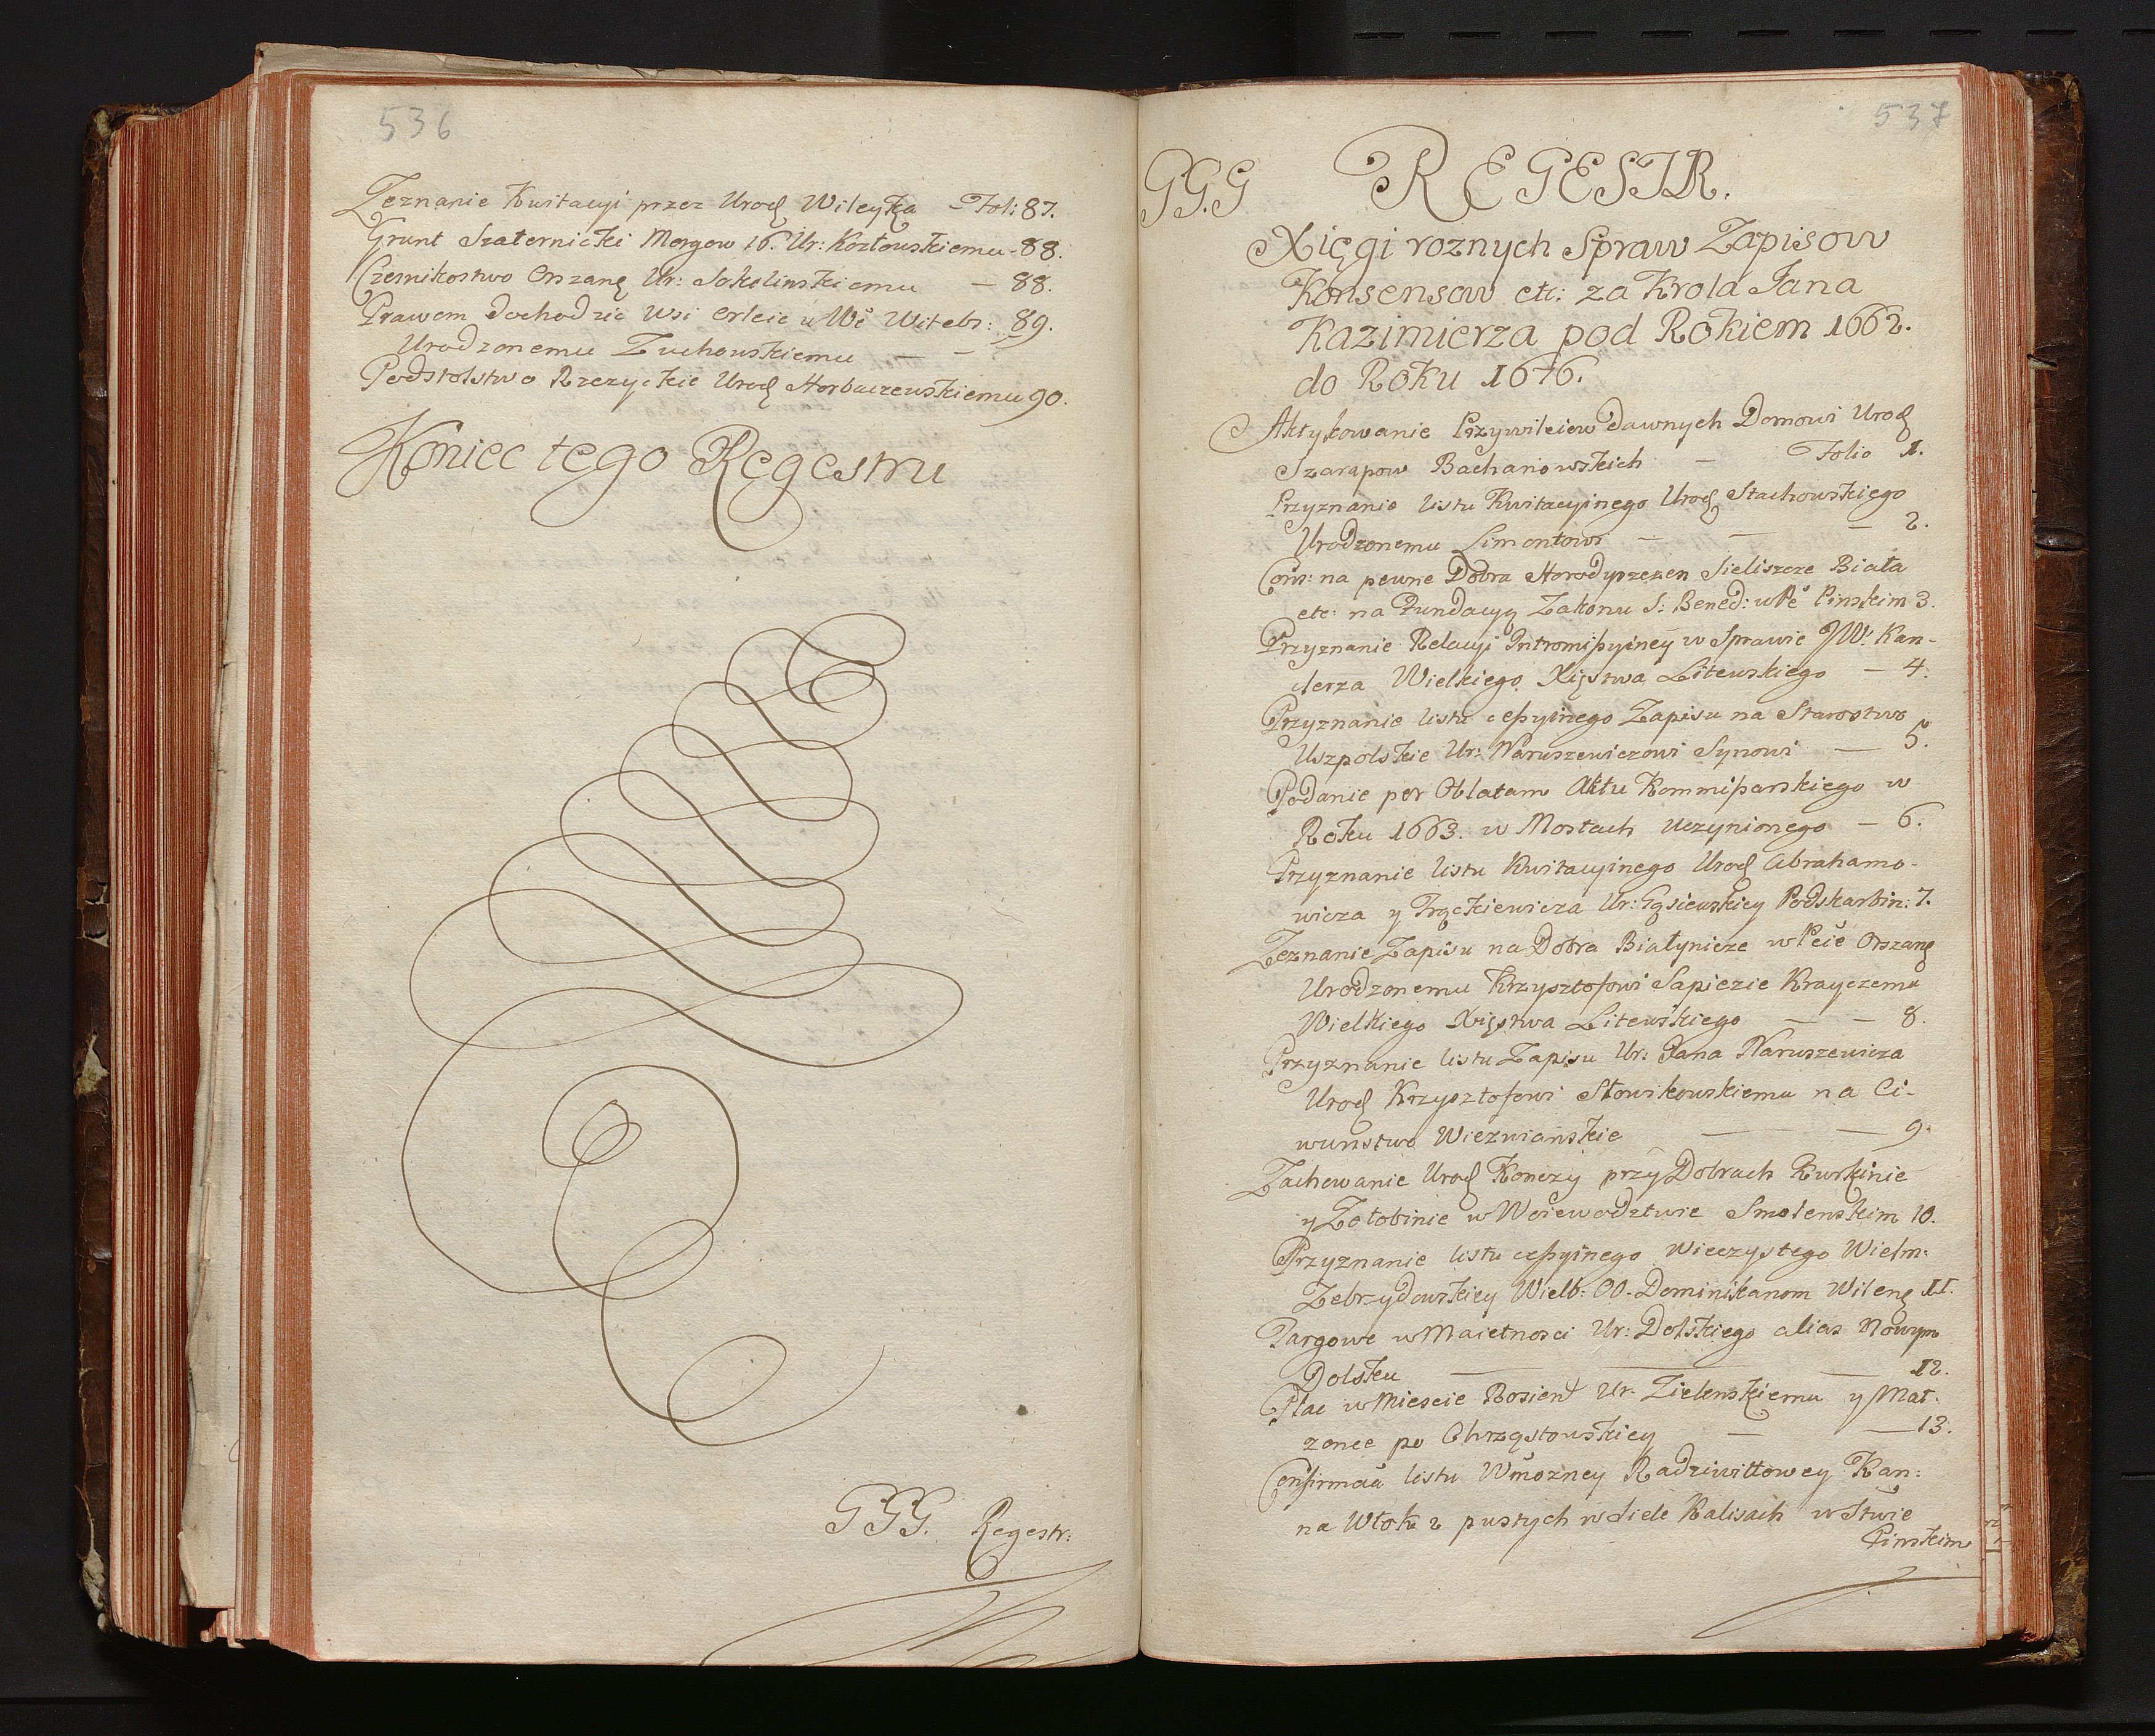 536
Zeznanie Kwitacyi przez Urodz Wileyka – Foli: 87.
Grunt Szaternicki Morgow 16. Ur: Kozłowskiemu – 88.
Czesnikostwo Orszans Ur: Sokolinskiemu — 88.
Prawem dochodzic Wsi Orleie w Wě Witebs: 89.
Urodzonemu Zuchowskiemu — —
Podstolstwo Rzezyckie Urodz Horbaczewskiemu 90.
Koniec tego Regestru
GGG. Regestr:
537
GG.G REGESTR.
Xięgi roznych Spraw Zapisow
Konsensow etc: za Krola Jana
Kazimierza pod Rokiem 1662.
do Roku 1676.
Aktykowanie Przywileiow dawnych Domowi Urodz
Szarapow Bachanowskich — Folio 1.
Przyznanie listu Kwitacyinego Urodz Stachowskiego
Urodzonemu Limontowi — — — 2.
Cons: na pewne Dobra Horodyszczen Sieliszcze Biała
etc: na Fundacyą Zakonu S: Bened: w Pě Pinskim 3.
Przyznanie Relacyi Intromißyiney w Sprawie JW. Kan-
clerza Wielkiego Xięstwa Litewskiego — 4.
Przyznanie listu ceßyinego Zapisu na Starostwo
Uszpolskie Ur: Naruszewiczowi Synowi — 5.
Podanie per Oblatam Aktu Kommißarskiego w
Roku 1663. w Mostach Uczynionego — 6.
Przyznanie listu Kwitacyinego Urodz Abrahamo-
wicza y Frąckiewicza Ur: Gąsiewskiey Podskarbin: 7.
Zeznanie Zapisu na Dobra Białynicze w Pcie Orszans
Urodzonemu Krzysztofowi Sapiezie Krayczemu
Wielkiego Xięstwa Litewskiego — — 8.
Przyznanie listu Zapisu Ur: Jana Naruszewicza
Urodz Krzysztofowi Słowikowskiemu na Ci-
wunstwo Wiezwianskie — — 9.
Zachowanie Urodz Konczy przy Dobrach Kurkinie
y Zołobinie w Woiewodztwie Smolenskim 10.
Przyznanie listu ceßyinego Wieczystego Wielm:
Zebrzydowskiey Wielb: OO. Dominikanom Wilens 11.
Targowe w Maietnosci Ur: Dolskiego alias Nowym
Dolsku — — — 12.
Plac w Miescie Rosien Ur. Zielenskiemu y Mał-
zonce po Chrząstowskiey — — 13.
Confirmaa listu Wmozney Radziwiłłowey Kan:
na Włok 2 pustych w Siele Kalisach w Stwie
Pinskim